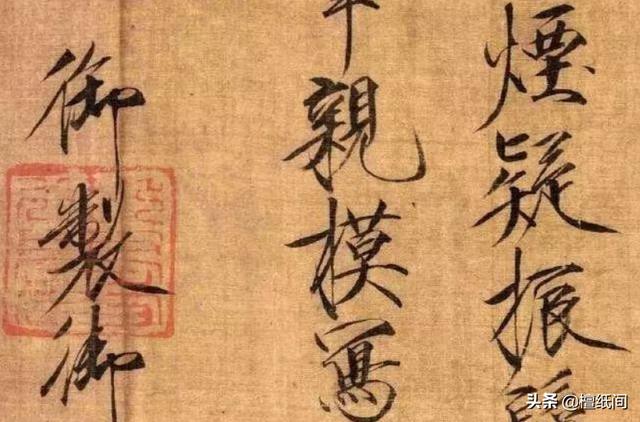 煙疑振
親模寫
御製御
头条 @檀纸间